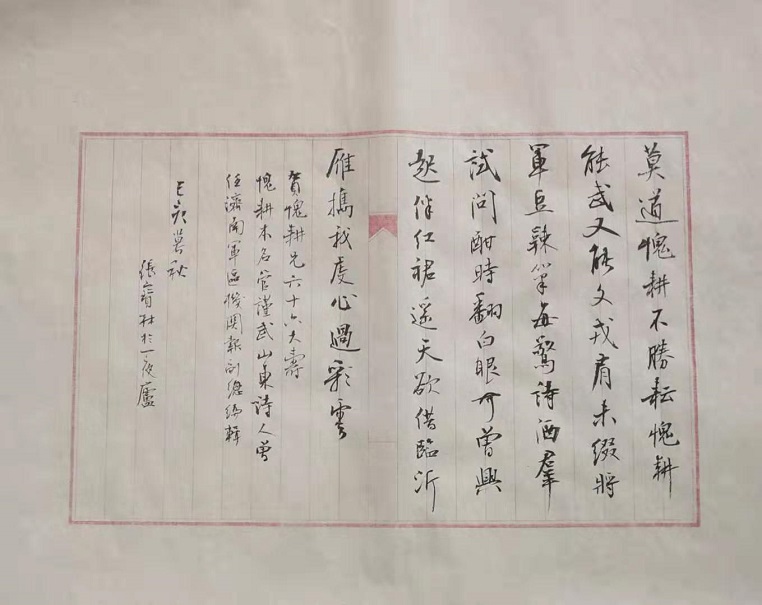 莫道愧耕不勝耘愧耕
能武又能文戎肩未綴將
軍豆辣筆每驚詩酒羣
試問酣時翻白眼可曾興
起伴紅裙遥天欲借臨沂
雁攜我虔心過彩雲
賀愧耕兄六十六大壽
愧耕本名管謹武山東詩人曾
任濟南軍區機関報副總編輯
己亥暮秋
張 林於一夜廬